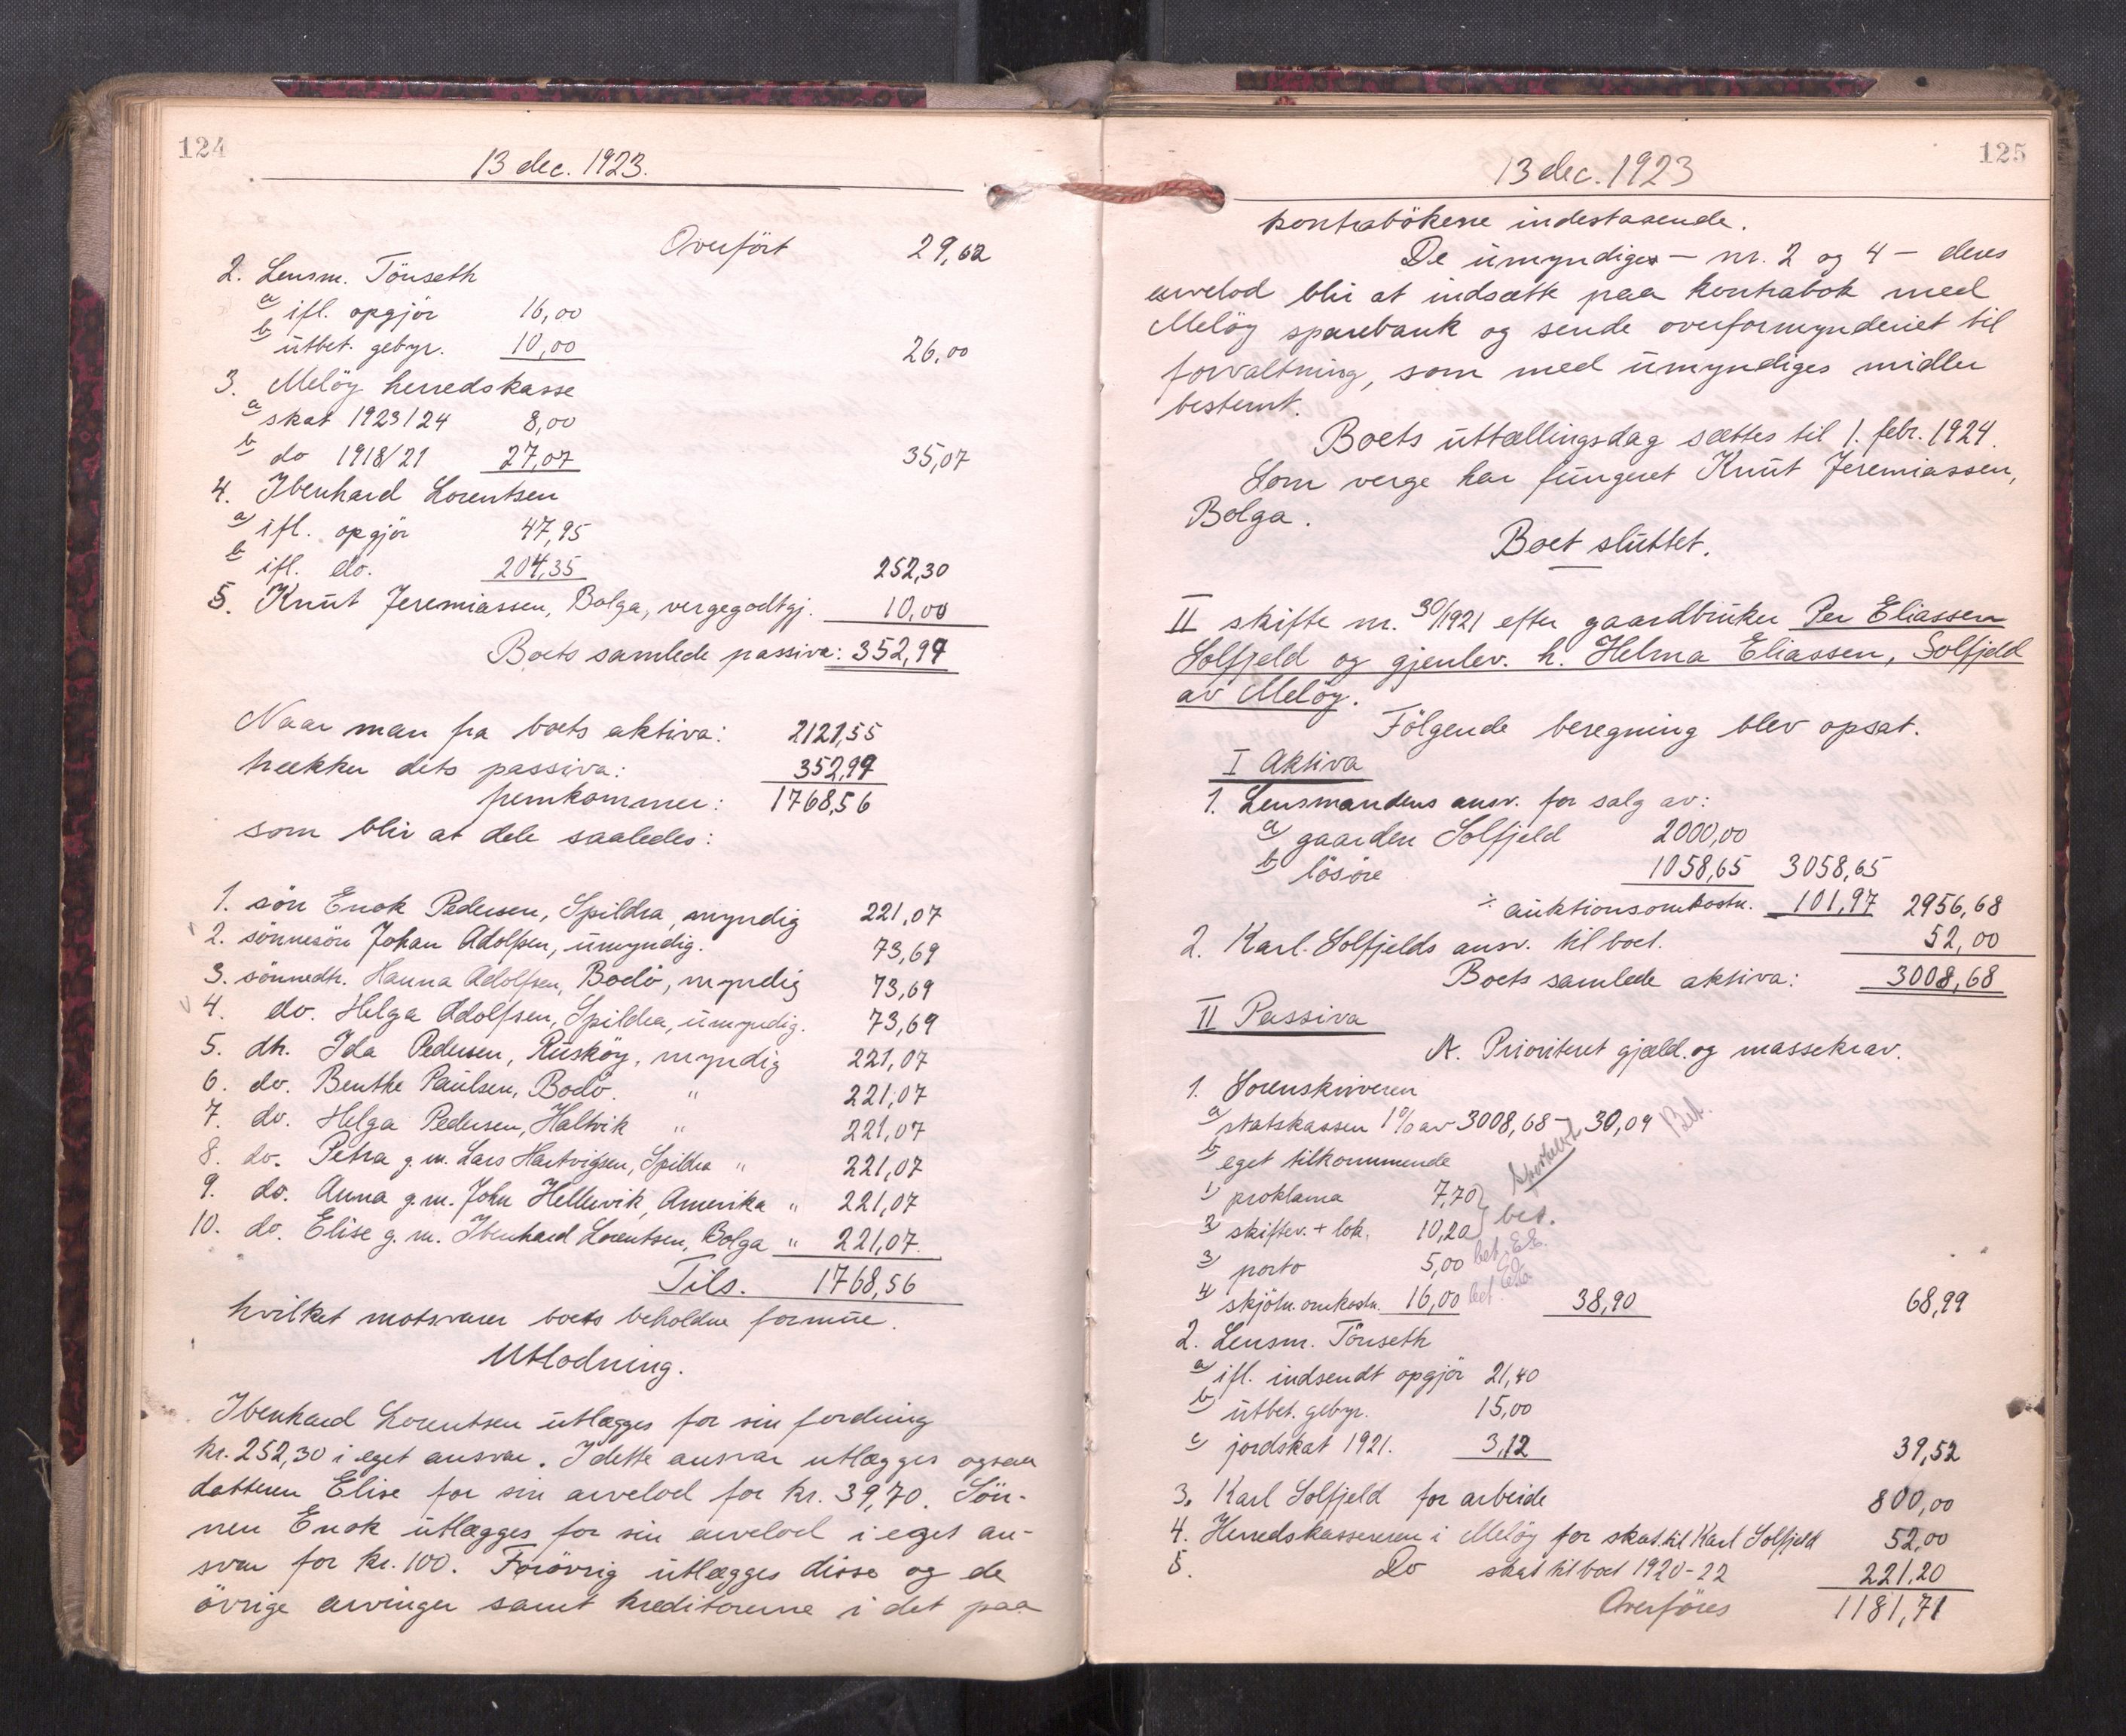 124
13 dec. 1923.
Overført 29,62
2. Lensm. Tönseth
a) ifl. opgjör 16,00
b) utbet. gebyr. 10,00 26,00
3. Melöy herredskasse
a) skat 1923/24 8,00
b) do 1918/21 27,07 35,07
4. Ibenhard Lorentsen
a) ifl. opgjör 47,95
b) ifl. do. 204,35 252,30
5. Knut Jeremiassen, Bolga, vergegodtgj. 10,00
Boets samlede passiva: 352,99
Naar man fra boets aktiva: 2121,55
trækker dets passiva: 352,99
fremkommer: 1768,56
som blir at dele saaledes:
1. sön Enok Pedersen, Spildra, myndig 221,07
2. sönnesön Johan Adolfsen, umyndig. 73,69
3. sönnedtr. Hanna Adolfsen, Bodö, myndig 73,69
4. do. Helga Adolfsen, Spildra, umyndig. 73,69
5. dtr. Ida Pedersen, Rusköy, myndig 221,07
6. do. Benthe Paulsen, Bodö. " 221,07
7. do. Helga Pedersen, Haltvik " 221,07
8. do. Petra g. m. Lars Hartvigsen, Spildra " 221,07
9. do. Anna g. m. John Hellervik, Amerika " 221,07
10. do. Elise g. m. Ibenhard Lorentsen, Bolga " 221,07.
Tils. 1768,56
hvilket motsvarer boets beholdne formue.
Utlodning.
Ibenhard Lorentsen utlægges for sin fordring
kr. 252,30 i eget ansvar. I dette ansvar utlægges ogsaa
datteren Elise for sin arvelod for kr. 39,70. Sön-
nen Enok utlægges for sin arvelod i eget an-
svar for kr. 100. Forövrig utlægges disse og de
övrige arvinger samt kreditorerne i det paa
125
13 dec. 1923
kontrabökene indestaaende.
De umyndiges — nr. 2 og 4 — deres
arvelod blir at indsætte paa kontrabok med
Melöy sparebank og sende overformynderiet til
forvaltning, som med umyndiges midler
bestemt.
Boets uttællingsdag sættes til 1. febr. 1924.
Som verge har fungeret Knut Jeremiassen,
Bolga.
Boet sluttet.
II skifte nr. 30/1921 efter gaardbruker Per Eliassen
Solfjeld og gjenlev. h. Helma Eliassen, Solfjeld
av Melöy.
Fölgende beregning blev opsat.
I Aktiva
1. Lensmandens ansv. for salg av:
a) gaarden Solfjeld 2000,00
b) lösöre 1058,65 3058,65
÷ auktionsomkostn. 101,97 2956,68
2. Karl Solfjelds ansv. til boet. 52,00
Boets samlede aktiva: 3008,68
II Passiva
A. Prioritert gjæld og massekrav.
1. Sorenskriveren
a) statskassen 1% av 3008,68 - 30,09 Bet.
b) eget tilkommende
1) proklama 7,70
2) skiftev. + lok. 10,20 bet.
3) porto 5,00 bet.
4) skjötn. omkostn. 16,00 bet. 38,90 68,99
2. Lensm. Tönseth
a) ifl. indsendt opgjör 21,40
b) utbet. gebyr. 15,00
c) jordskat 1921. 3,12 39,52
3. Karl Solfjeld for arbeide 800,00
4. Herredskassereren i Melöy for skat til Karl Solfjeld 52,00
5. Do skat til boet 1920-22 221,20
Overföres 1181,71